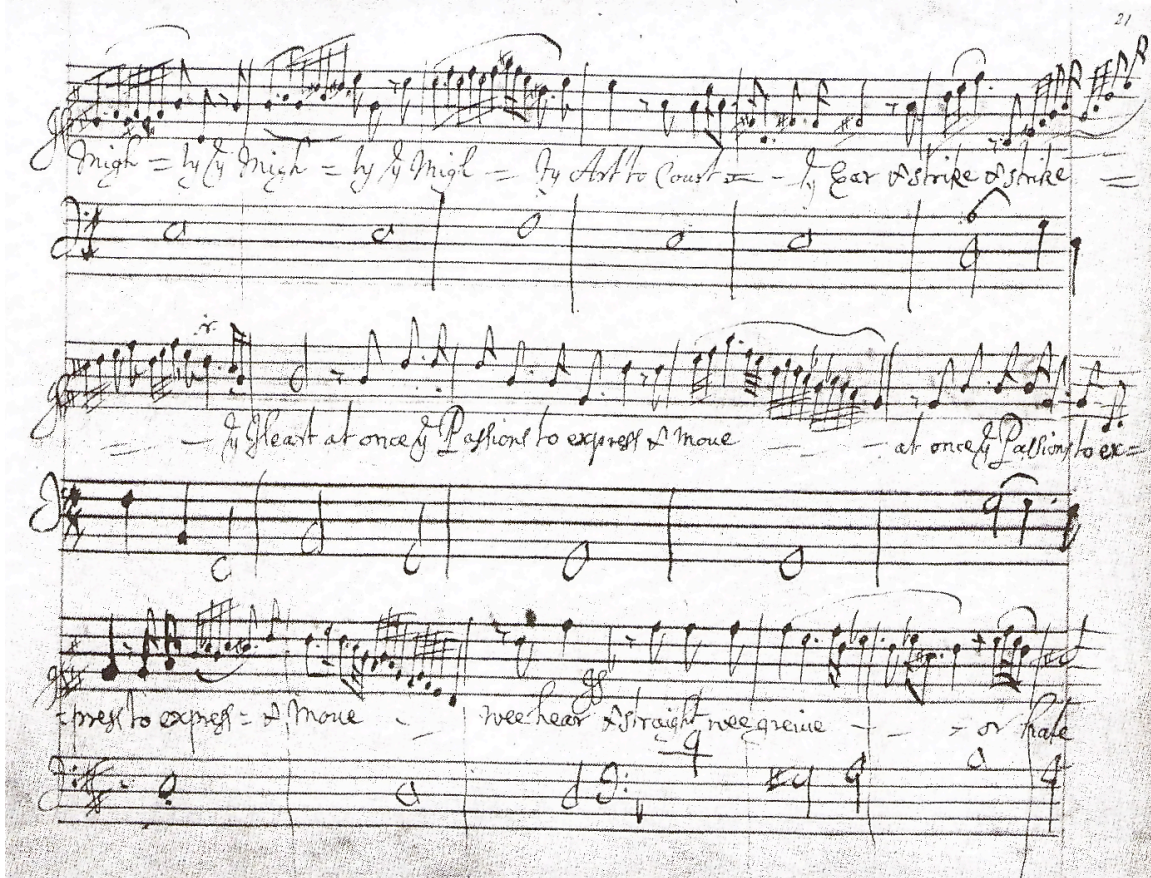 21
Migh = ty yͤ Migh = ty yͤ Migh = ty Art to Court = - yͤ Ear & strike & strike =
- - yͤ Heart at once yͤ Passions to express & Move - - at once yͤ Passions to ex=
=press to express = & Move - - wee hear & straight wee greive - - - or hate